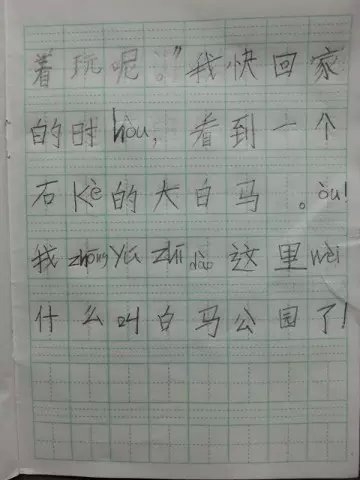 着玩呢。”我快回家
的时hòu，看到一个
石Kè的大白马。òu！
我zhōng Yú zhī dào这里wèi
什么叫白马公园了！